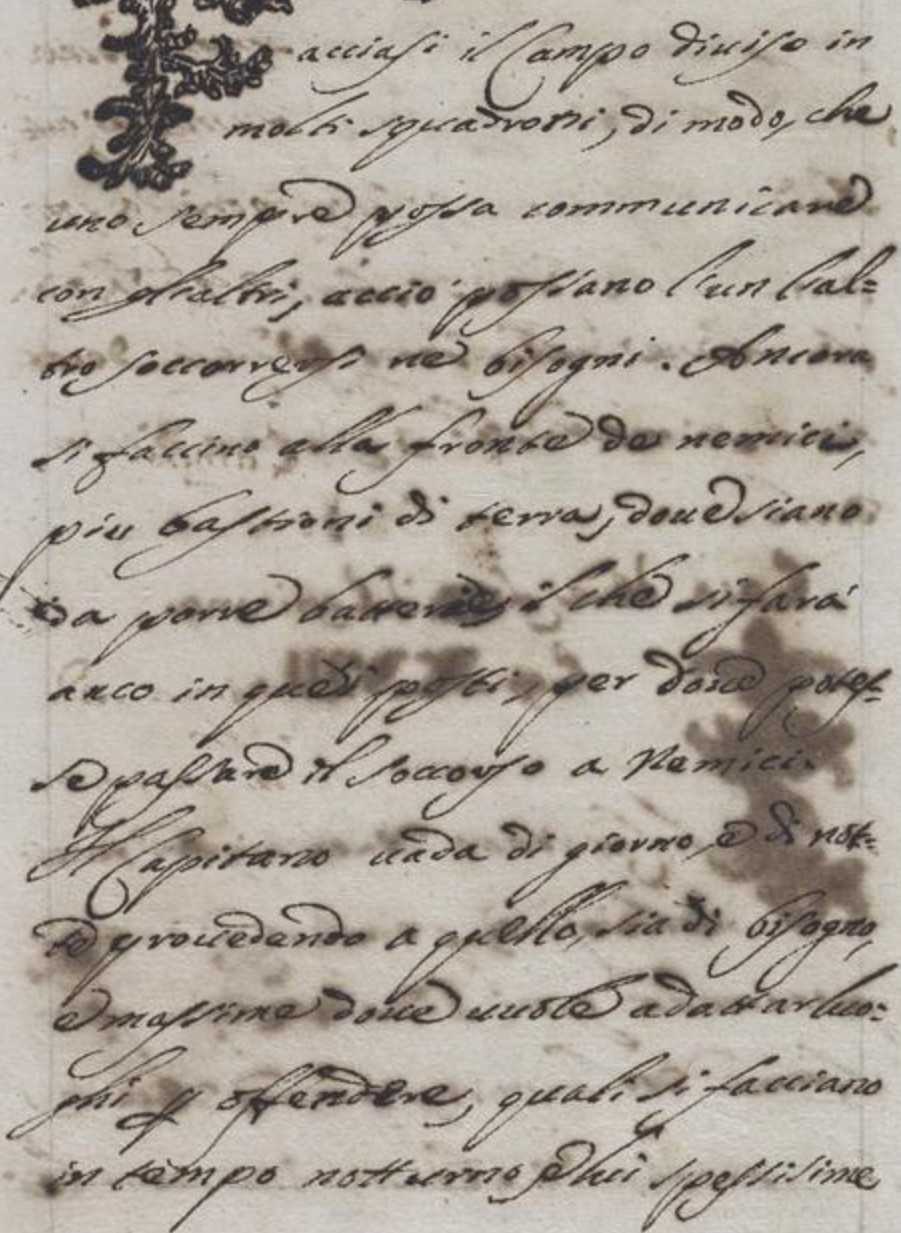 Facciasi il Campo diuiso in
molti squadroni, di modo, che
uno sempre possa communicare
con gl'altri, acciò possano l'un l'al=
tro soccorrersi ne bisogni. Ancora
si faccino alla fronte de nemici,
piu bastioni di terra, doue siano
da porre batterie, il che si farà
anco in quei posti, per doue potes=
se passare il soccorso a Nemici.
Il Capitano uada di giorno, e di not=
te prouedendo a quello, sia di bisogno,
e massime doue uuole adattar luo=
ghi p offendere, quali si facciano
in tempo notturno, e lui spessisime